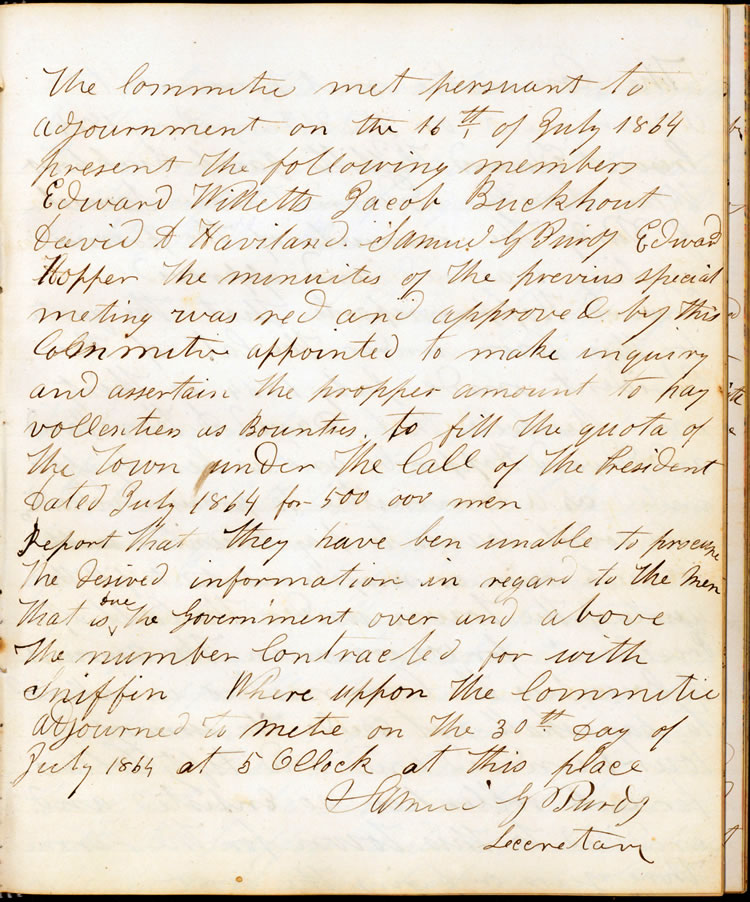 The Committe met persuant to
adjournment on the 16th of July 1864
present the following members
Edward Willetts Jacob Buckhout
David D Haviland. Samuel G Purdy Edward
Hopper the minuites of the previus special
meting was red and approved by this
Committe appointed to make inquiry
and assertain the propper amount to pay
vollentiers as Bounties. to fill the quota of
the Town under the Call of the President
Dated July 1864 for 500 000 men
report that they have ben unable to procure
the desired information in regard to the men
that is due the Government over and above
the number Contracted for with
Sniffin Where uppon the Committie
adjourned to mete on the 30th Day of
July 1864 at 5 OClock at this place
Samuel G Purdy
Secretary